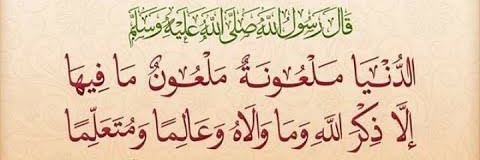 قَالَ رَسُولُ اللَّهِ صَلَّى اللَّهُ عَلَيْهِ وَسَلَّمَ
الدُّنْيَا مَلْعُونَةٌ مَلْعُونٌ مَا فِيهَا
إِلَّا ذِكْرَ اللَّهِ وَمَا وَالَاهُ وَعَالِمًا وَمُتَعَلِّمًا